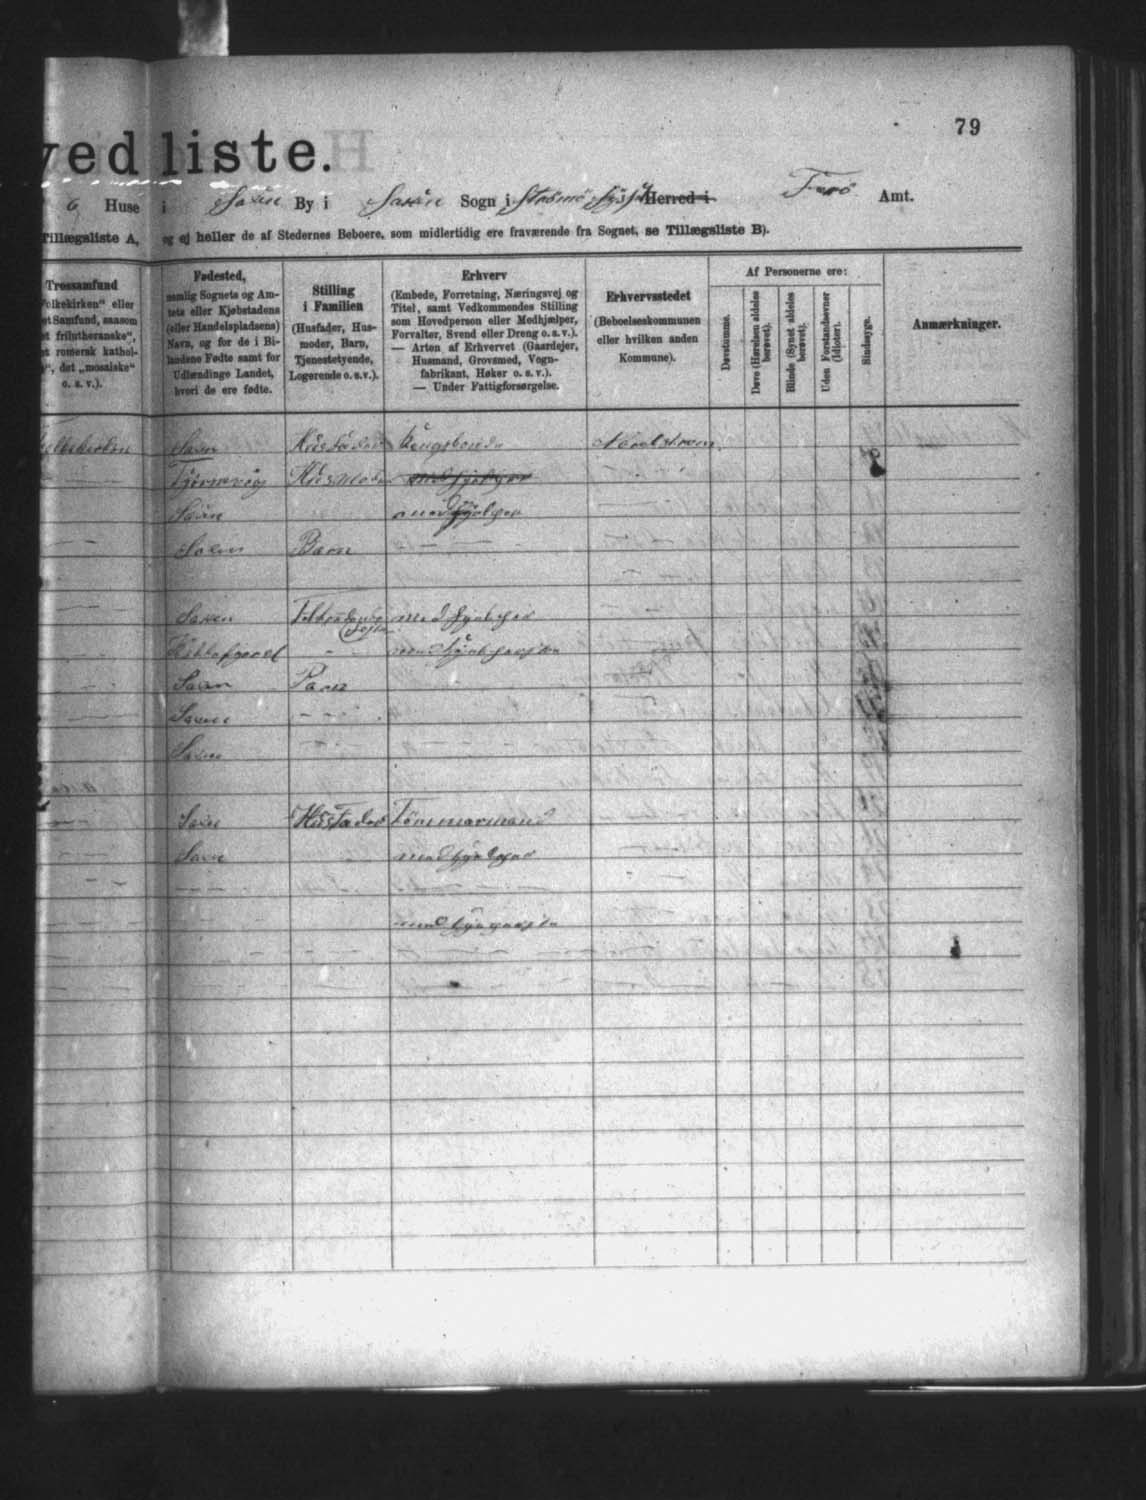 79
ved liste.
6 Huse i Saxen By i Saxen Sogn i Strømø Syssel Herred i Færø Amt.
Tillægsliste A, og ej heller de af Stedernes Beboere, som midlertidig ere fraværende fra Sognet, se Tillægsliste B).
Trossamfund
Folkekirken" eller
et Samfund, saasom
et frilutheranske",
et romersk kathol-
", det „mosaiske"
o. s. v.).
Fødested,
nemlig Sognets og Am-
tets eller Kjøbstadens
(eller Handelspladsens)
Navn, og for de i Bi-
landene Fødte samt for
Udlændinge Landet,
hvori de ere fødte.
Stilling
i Familien
(Husfader, Hus-
moder, Barn,
Tjenestetyende,
Logerende o. s. v.).
Erhverv
(Embede, Forretning, Næringsvej og
Titel, samt Vedkommendes Stilling
som Hovedperson eller Medhjælper,
Forvalter, Svend eller Dreng o. s. v.).
— Arten af Erhvervet (Gaardejer,
Husmand, Grovsmed, Vogn-
fabrikant, Høker o. s. v.).
— Under Fattigforsørgelse.
Erhvervsstedet
(Beboelseskommunen
eller hvilken anden
Kommune).
Af Personerne ere:
Døvstumme.
Døve (Hørelsen aldeles
berøvet).
Blinde (Synet aldeles
berøvet).
Uden Forstandsevner
(Idioter).
Sindssyge.
Anmærkninger.
Saxen Husfader Kongsbonde Nordstrøm
Tjørnevig Husmoder
Saxen medhjelper
Saxen Barn
Saxen medhjelper
Saxen Barn
Saxen
Saxen
Saxen Husfader Tømmermand
Saxen medhjelper